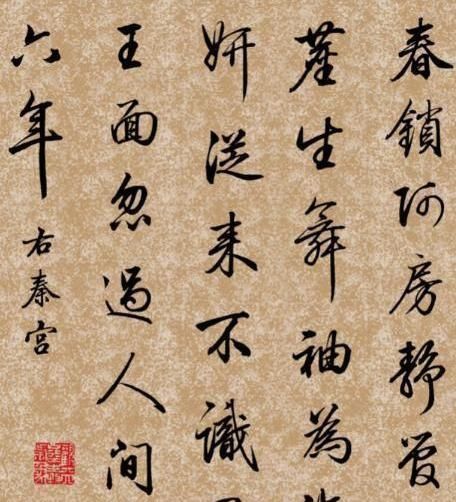 春鎖阿房靜管
塵生舞袖為
妍從來不識
王面忽過人間
六年
右秦宮